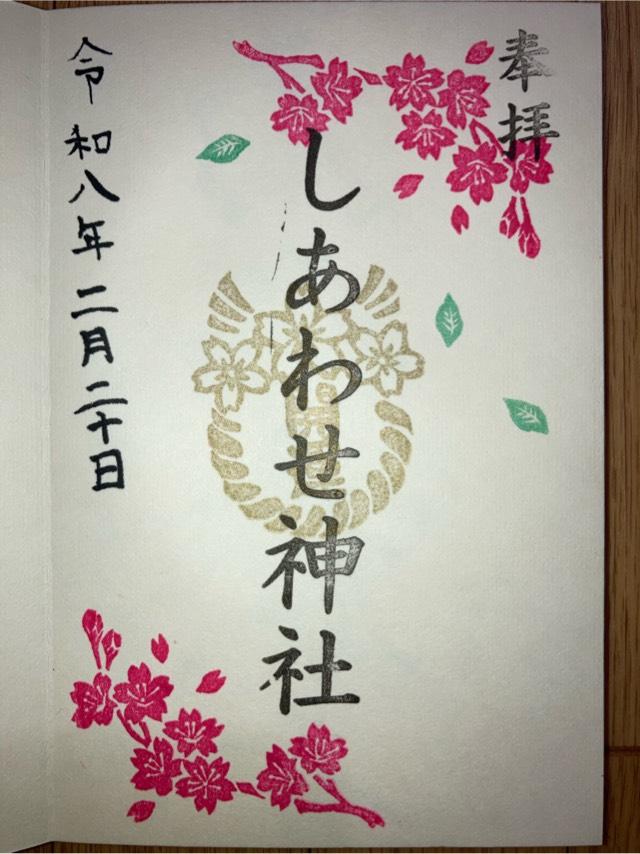 奉拝
しあわせ神社
令和八年二月二十日